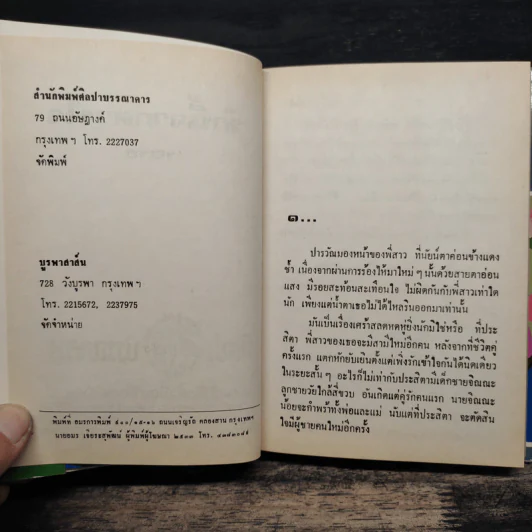 สำนักพิมพ์ศิลปาบรรณาคาร
79 ถนนอัษฎางค์
กรุงเทพฯ โทร. 2227037
จัดพิมพ์
บูรพาสาส์น
728 วังบูรพา กรุงเทพฯ
โทร. 2215672, 2237975
จัดจำหน่าย
พิมพ์ที่ อมรการพิมพ์ ๕๐๐/๑๕-๑๖ ถนนเจริญรัถ คลองสาน กรุงเทพฯ
นายอมร เจียรอสุพัฒน์ ผู้พิมพ์ผู้โฆษณา ๒๕๓๓ โทร. ๔๓๗๓๐๕๕
๑...
ปารวัณมองหน้าของพี่สาว ที่นัยน์ตาค่อนข้างแดง
ช้ำ เนื่องจากผ่านการร้องไห้มาใหม่ๆ นั้นด้วยสายตาอ่อน
แสง มีรอยสะท้อนสะเทือนใจ ไม่ผิดกันกับพี่สาวเท่าใด
นัก เพียงแต่น้ำตาเธอไม่ได้ไหลรินออกมาเท่านั้น
มันเป็นเรื่องเศร้าสลดหดหู่ยิ่งนักมิใช่หรือ ที่ประ
สิตา พี่สาวของเธอจะมีสามีใหม่อีกคน หลังจากที่ชีวิตคู่
ครั้งแรก แตกหักยับเยินตั้งแต่เพิ่งรักเข้าใจกันได้นิดเดียว
ในระยะสั้นๆ อะไรก็ไม่เท่ากับประสิตามีเด็กชายจิณณะ
ลูกชายวัยใกล้สี่ขวบ อันเกิดแต่คู่รักคนแรก นายจิณณะ
น้อยจะกำพร้าทั้งพ่อและแม่ นับแต่ที่ประสิตา จะตัดสิน
ใจมีผู้ชายคนใหม่อีกครั้ง